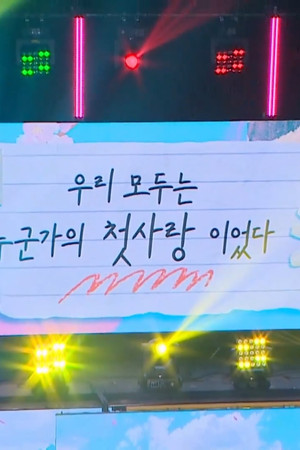 우리 모두는
누군가의 첫사랑 이었다